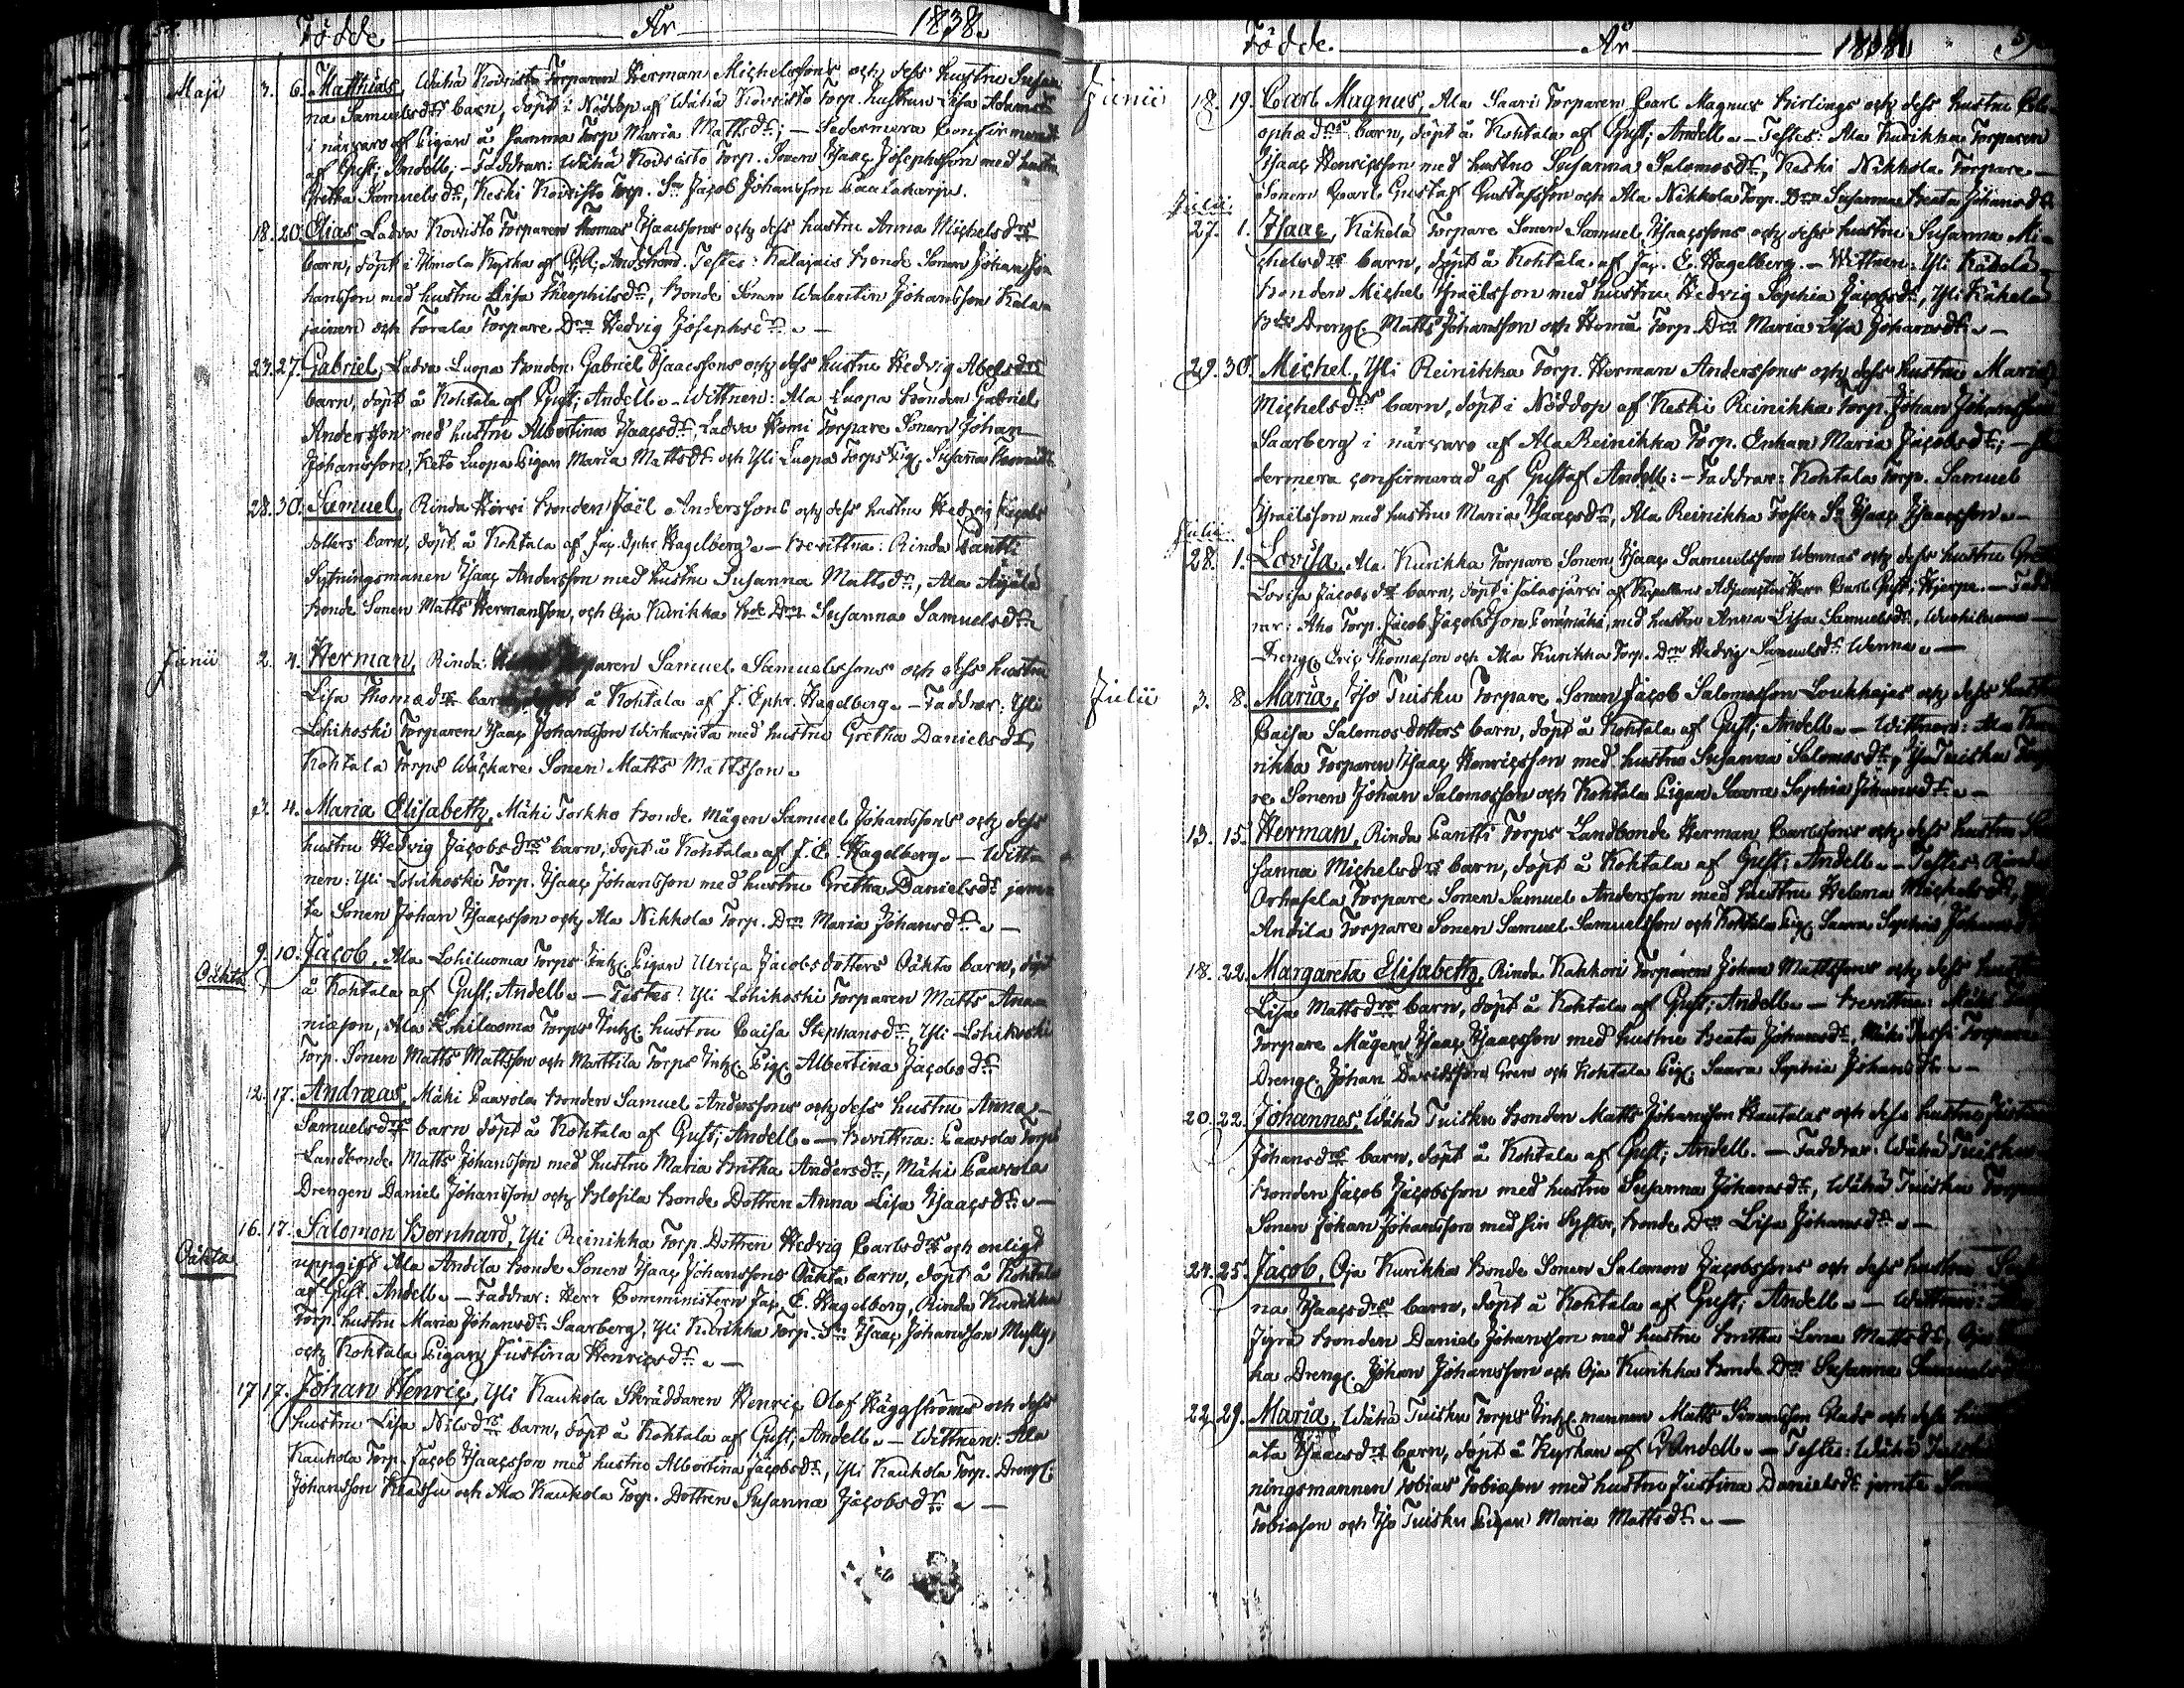 Födde År 1838.
Maji 3. 6. Matthias, Wähä Koivisto Torparen Herman Michelssons och dess hustru Susan
na Samuelsdrs barn, döpt i Nöddop af Wähä Koivisto Torp. hustrun Lisa Adamsdr
i närvaro af Pigan å samma Torp Maria Mattsdr; — Sedermera Confirmeradt
af Gust; Andell; — Faddrar: Wähä Koivisto Torp. Sonen Isaac Josephsson med hustru
Gretha Samuelsdr, Keski Koivisto Torp. Sn Jacob Johansson
18. 20. Elias, Ladva Koivisto Torparen Thomas Isaacssons och dess hustru Anna Michelsdrs
barn, döpt i Ilmola Kyrka af Testes: Kalajais Bonde Sonen Johan Jo
hansson med hustru Lisa Theophilsdr, Bonde Sonen Walentin Johansson Kala-
jainen och Torala Torpare Drn Hedvig Josephsdr. —
23. 27. Gabriel, Ladva Luopa Bonden Gabriel Isaacssons och dess hustru Hedvig Abelsdrs
barn, döpt å Kohtala af Gust; Andell. — Wittnen: Ala Luopa Bonden Gabriel
Andersson med hustru Albertina Isaacsdr, Ladva Homi Torpare Sonen Johan
Johansson, Keto Luopa Pigan Maria Mattsdr och Yli Luopa Torps Pig. Susanna
28. 30. Samuel, Rinda Körri Bonden Joël Anderssons och dess hustru Hedvig Jacobs
dotters barn, döpt å Kohtala af Jac. Ephr. Hagelberg. — Bevittna: Rinda Pantti
Sytningsmanen Isaac Andersson med hustru Susanna Mattsdr, Ala Äijälä
Bonde Sonen Matts Hermansson, och Oja Kurikka Bde Drn Susanna Samuelsdr
Junii 2. 4. Herman, Rinda Samuel Samuelssons och dess hustru
Lisa Thomædrs barn döpt å Kohtala af J. Ephr. Hagelberg. — Faddrar: Yli
Lohikoski Torparen Isaac Johansson med hustru Gretha Danielsdr,
Kohtala Torps Wäckare Sonen Matts Mattsson.
3. 4. Maria Elisabeth, Mäki Torkko Bonde Mågen Samuel Johanssons och dess
hustru Hedvig Jacobsdrs barn, döpt å Kohtala af J. E. Hagelberg. — Witt-
nen: Yli Lohikoski Torp. Isaac Johansson med hustru Gretha Danielsdr jem
te Sonen Johan Isaacsson och Ala Nikkola Torp. Drn Maria Johansdr. —
Oäkta 9. 10. Jacob, Ala Lohiluoma Torps Inh. Pigan Ulrica Jacobsdotters Oäkta barn, döpt
å Kohtala af Gust; Andell. — Testes: Yli Lohikoski Torparen Matts Ana-
niæson, Ala Lohiluoma Torps Inh. hustru Caisa Stephansdr, Yli Lohikoski
Torp. Sonen Matts Mattsson och Marttila Torps Inh. Pig. Albertina Jacobsdr
12. 17. Andreas, Mäki Paavola Bonden Samuel Anderssons och dess hustru Anna
Samuelsdrs barn döpt å Kohtala af Gust; Andell. — Bevittna: Paavola Torps
Landbonde Matts Johansson med hustru Maria Britha Andersdr, Mäki Paavola
Drengen Daniel Johansson och Blofila Bonde Dottren Anna Lisa Isaacsdr. —
Oäkta 16. 17. Salomon Bernhard, Yli Reinikka Torp. Dottren Hedvig Carlsdrs och enligt
uppgift Ala Andila Bonde Sonen Isaac Johanssons Oäkta barn, döpt å Kohtala
af Gust. Andell. — Faddrar: Herr Comministern Jac. E. Hagelberg, Rinda Kurikka
Torp. hustru Maria Johansdr Saarberg, Yli Kurikka Torp. Sn Isaac Johansson Mylly,
och Kohtala Pigan Justina Henricsdr. —
17. 17. Johan Henric, Yli Kaukola Skräddaren Henric Olof Häggströms och dess
hustru Lisa Nilsdrs barn, döpt å Kohtala af Gust; Andell. — Wittnen: Ala
Kaukola Torp. Jacob Isaacsson med hustru Albertina Jacobsdr, Yli Kaukola Torp. Dreng.
Johansson Klassu och Ala Kaukola Torp. Dottren Susanna Jacobsdr. —
Födde. År 1838
Junii 18. 19. Carl Magnus, Ala Saari Torparen Carl Magnus Birlings och dess hustru
barn, döpt å Kohtala af Gust; Andell. — Testes: Ala Kurikka Torparen
Isaac Henricsson med hustru Susanna Salomosdr, Keski Nikkola Torpare
Sonen Carl Gustaf Gustafsson och Ala Nikkola Torp. Drn Susanna Beata Johansdr.
Julii
27. 1. Isaac, Kähelä Torpare Sonen Samuel Isaacssons och dess hustru Susanna Mi-
chelsdrs barn, döpt å Kohtala af Jac. E. Hagelberg. — Wittnen: Yli Kähelä
Bonden Michel Israelsson med hustru Hedvig Sophia Jacobsdr, Yli Kähelä
Bds Dreng. Matts Johansson och Torp. Drn Maria Lisa Johansdr. —
29. 30. Michel, Yli Reinikka Torp. Herman Anderssons och dess hustru Maria
Michelsdrs barn, döpt i Nöddop af Keski Reinikka Torp. Johan Johansson
Saarberg i närvaro af Ala Reinikka Torp. Enkan Maria Jacobsdr; —
dermera confirmerad af Gustaf Andell: — Faddrar: Kohtala Torp. Samuel
Israelsson med hustru Maria Isaacsdr, Ala Reinikka Foster Sn Isaac Isaacsson. —
Julii
28. 1. Lovisa, Ala Kurikka Torpare Sonen Isaac Samuelsson Wennas och dess hustru
Lovisa Jacobsdrs barn, döpt i Jalasjärvi af Kapellans Adjuncten Herr Carl Gust; Hjerpe. —
rar: Aho Torp. Jacob Jacobsson med hustru Anna Lisa Samuelsdr,
Dreng. Eric Thomæson och Ala Kurikka Torp. Drn Hedvig Samuelsdr Wenna. —
Julii 3. 8. Maria, Iso Tuisku Torpare Sonen Jacob Salomosson Loukkajas och dess hustru
Caisa Salomosdotters barn, döpt å Kohtala af Gust; Andell. — Wittnen: Ala
rikka Torparen Isaac Henricsson med hustru Susanna Salomosdr, Iso Tuisku
re Sonen Johan Salomosson och Kohtala Pigan Saara Sophia Johansdr. —
13. 15. Herman, Rinda Pantti Torps Landbonde Herman Carlssons och dess hustru
sanna Michelsdrs barn, döpt å Kohtala af Gust; Andell. — Testes:
Orhasela Torpare Sonen Samuel Andersson med hustru Helena Michelsdr,
Andila Torpare Sonen Samuel Samuelsson och Kohtala Pig. Saara Sophia
18. 22. Margareta Elisabeth, Rinda Kakkori Torparen Johan Mattssons och dess
Lisa Mattsdrs barn, döpt å Kohtala af Gust; Andell. — Bevittna: Mäki
Torpare Mågen Isaac Isaacsson med hustru Beata Johansdr, Mäki Torpare
Dreng. Johan Davidsson Gren och Kohtala Pig. Saara Sophia Johansdr. —
20. 22. Johannes, Wähä Tuisku Bonden Matts Johansson Rautalas och dess hustru
Johansdrs barn, döpt å Kohtala af Gust; Andell. — Faddrar: Wähä Tuisku
Bonden Jacob Jacobsson med hustru Susanna Johansdr, Wähä Tuisku
Sonen Johan Johansson med sin Syster, Bonde Drn Lisa Johansdr. —
24. 25. Jacob, Oja Kurikka Bonde Sonen Salomon Jacobssons och dess hustru
na Isaacsdrs barn, döpt å Kohtala af Gust; Andell. — Wittnen:
Jyrä Bonden Daniel Johansson med hustru Britha Lena Mattsdr, Oja
ka Dreng. Johan Johansson och Oja Kurikka Bonde Drn Susanna
22. 29. Maria, Wähä Tuisku Torps Inh. mannen Matts Simonsson och dess
ata Isaacsdrs barn, döpt å Kyrkan af G. Andell. — Testes: Wähä
ningsmannen Tobias Tobiæson med hustru Justina Danielsdr jemte
Tobiæson och Iso Tuisku Pigan Maria Mattsdr. —